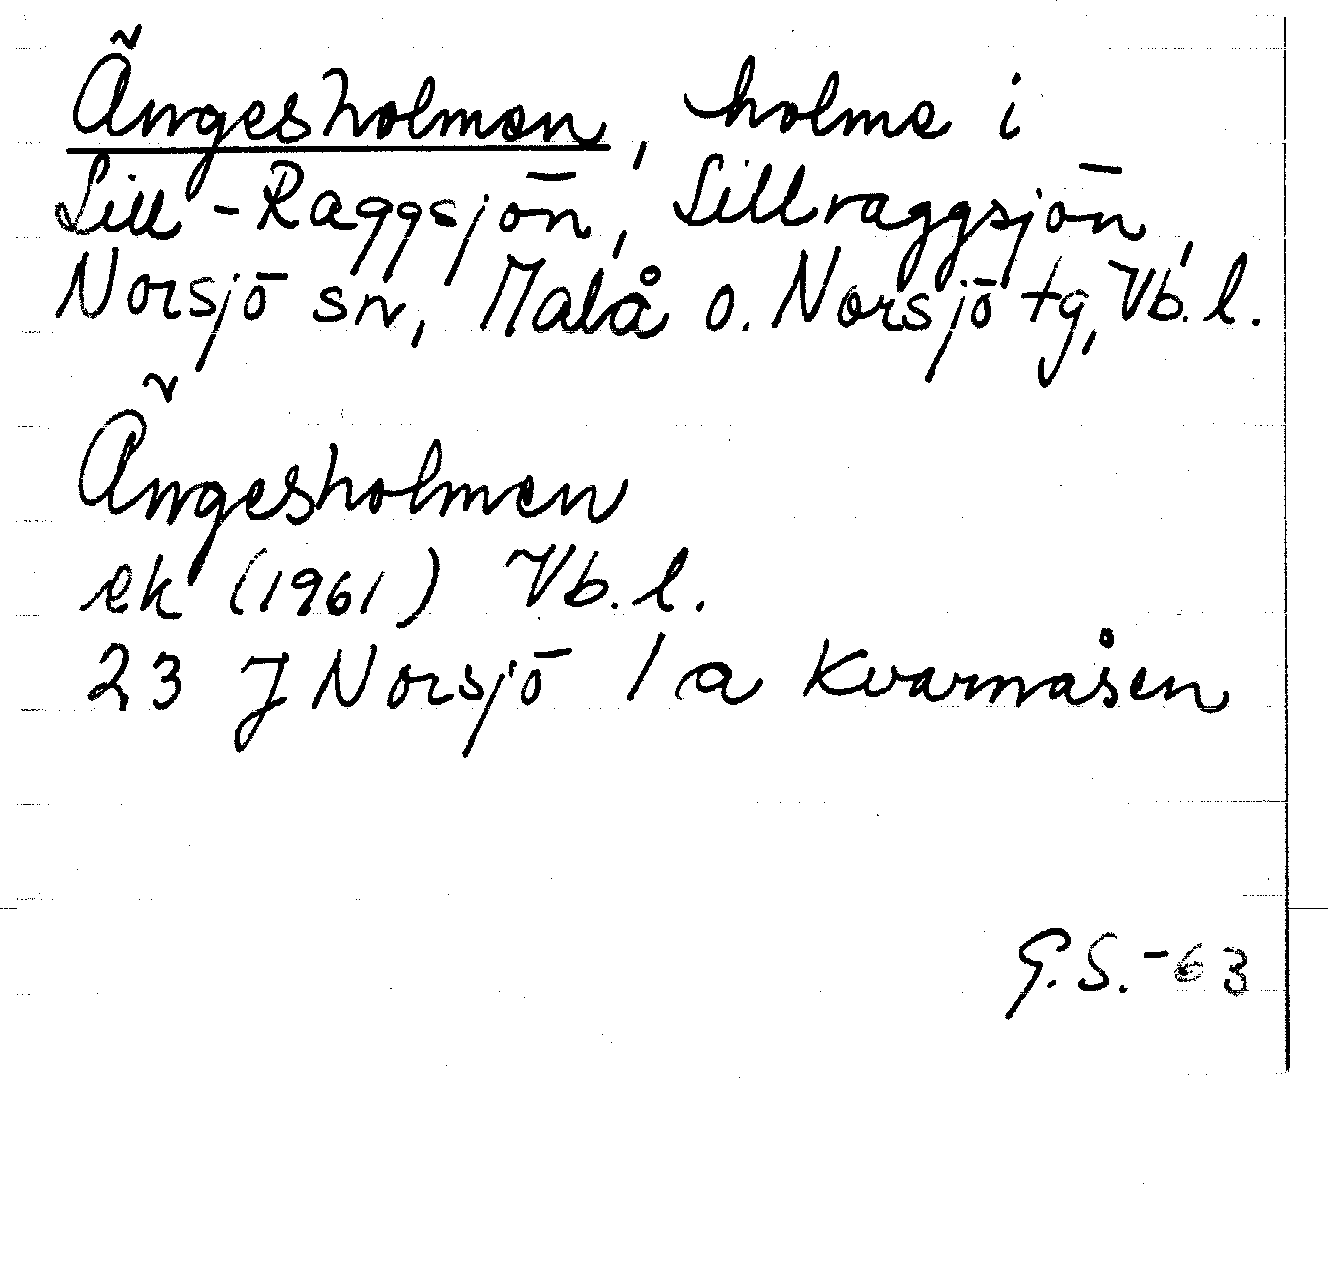 Ängesholmen, holme i
Lill-Raggsjön, Lillraggsjön,
Norsjö sn, Malå o. Norsjö tg, Vb. l.
Ängesholmen
ek (1961) Vb. l.
23 J Norsjö 1 a Kvarnåsen
G.S.-63